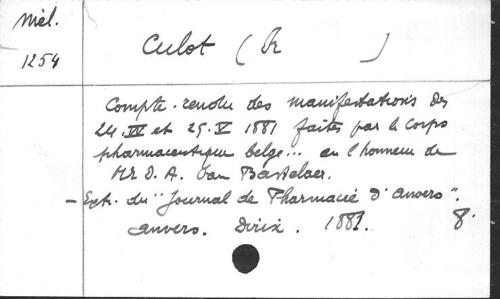 Miél.
1254
Culot (Dr )
Compte-rendu des manifestations des
24.IV et 25.V 1881 faites par le Corps
pharmaceutique belge... en l'honneur de
Mr D. A. Van Bastelaer.
- Extr. du "Journal de Pharmacie d'Anvers".
Anvers. Dirix. 1881. 8.